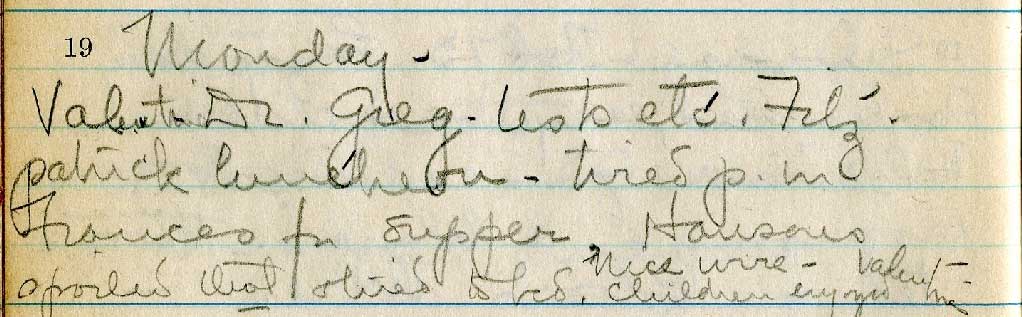 19 Monday -
Valent. Dr. Greg - tests etc. Fitz-
patrick luncheon - tired p.m
Frances for supper. Hansons
spoiled that & tired to bed. Nice wire - Valentine
children enjoyed